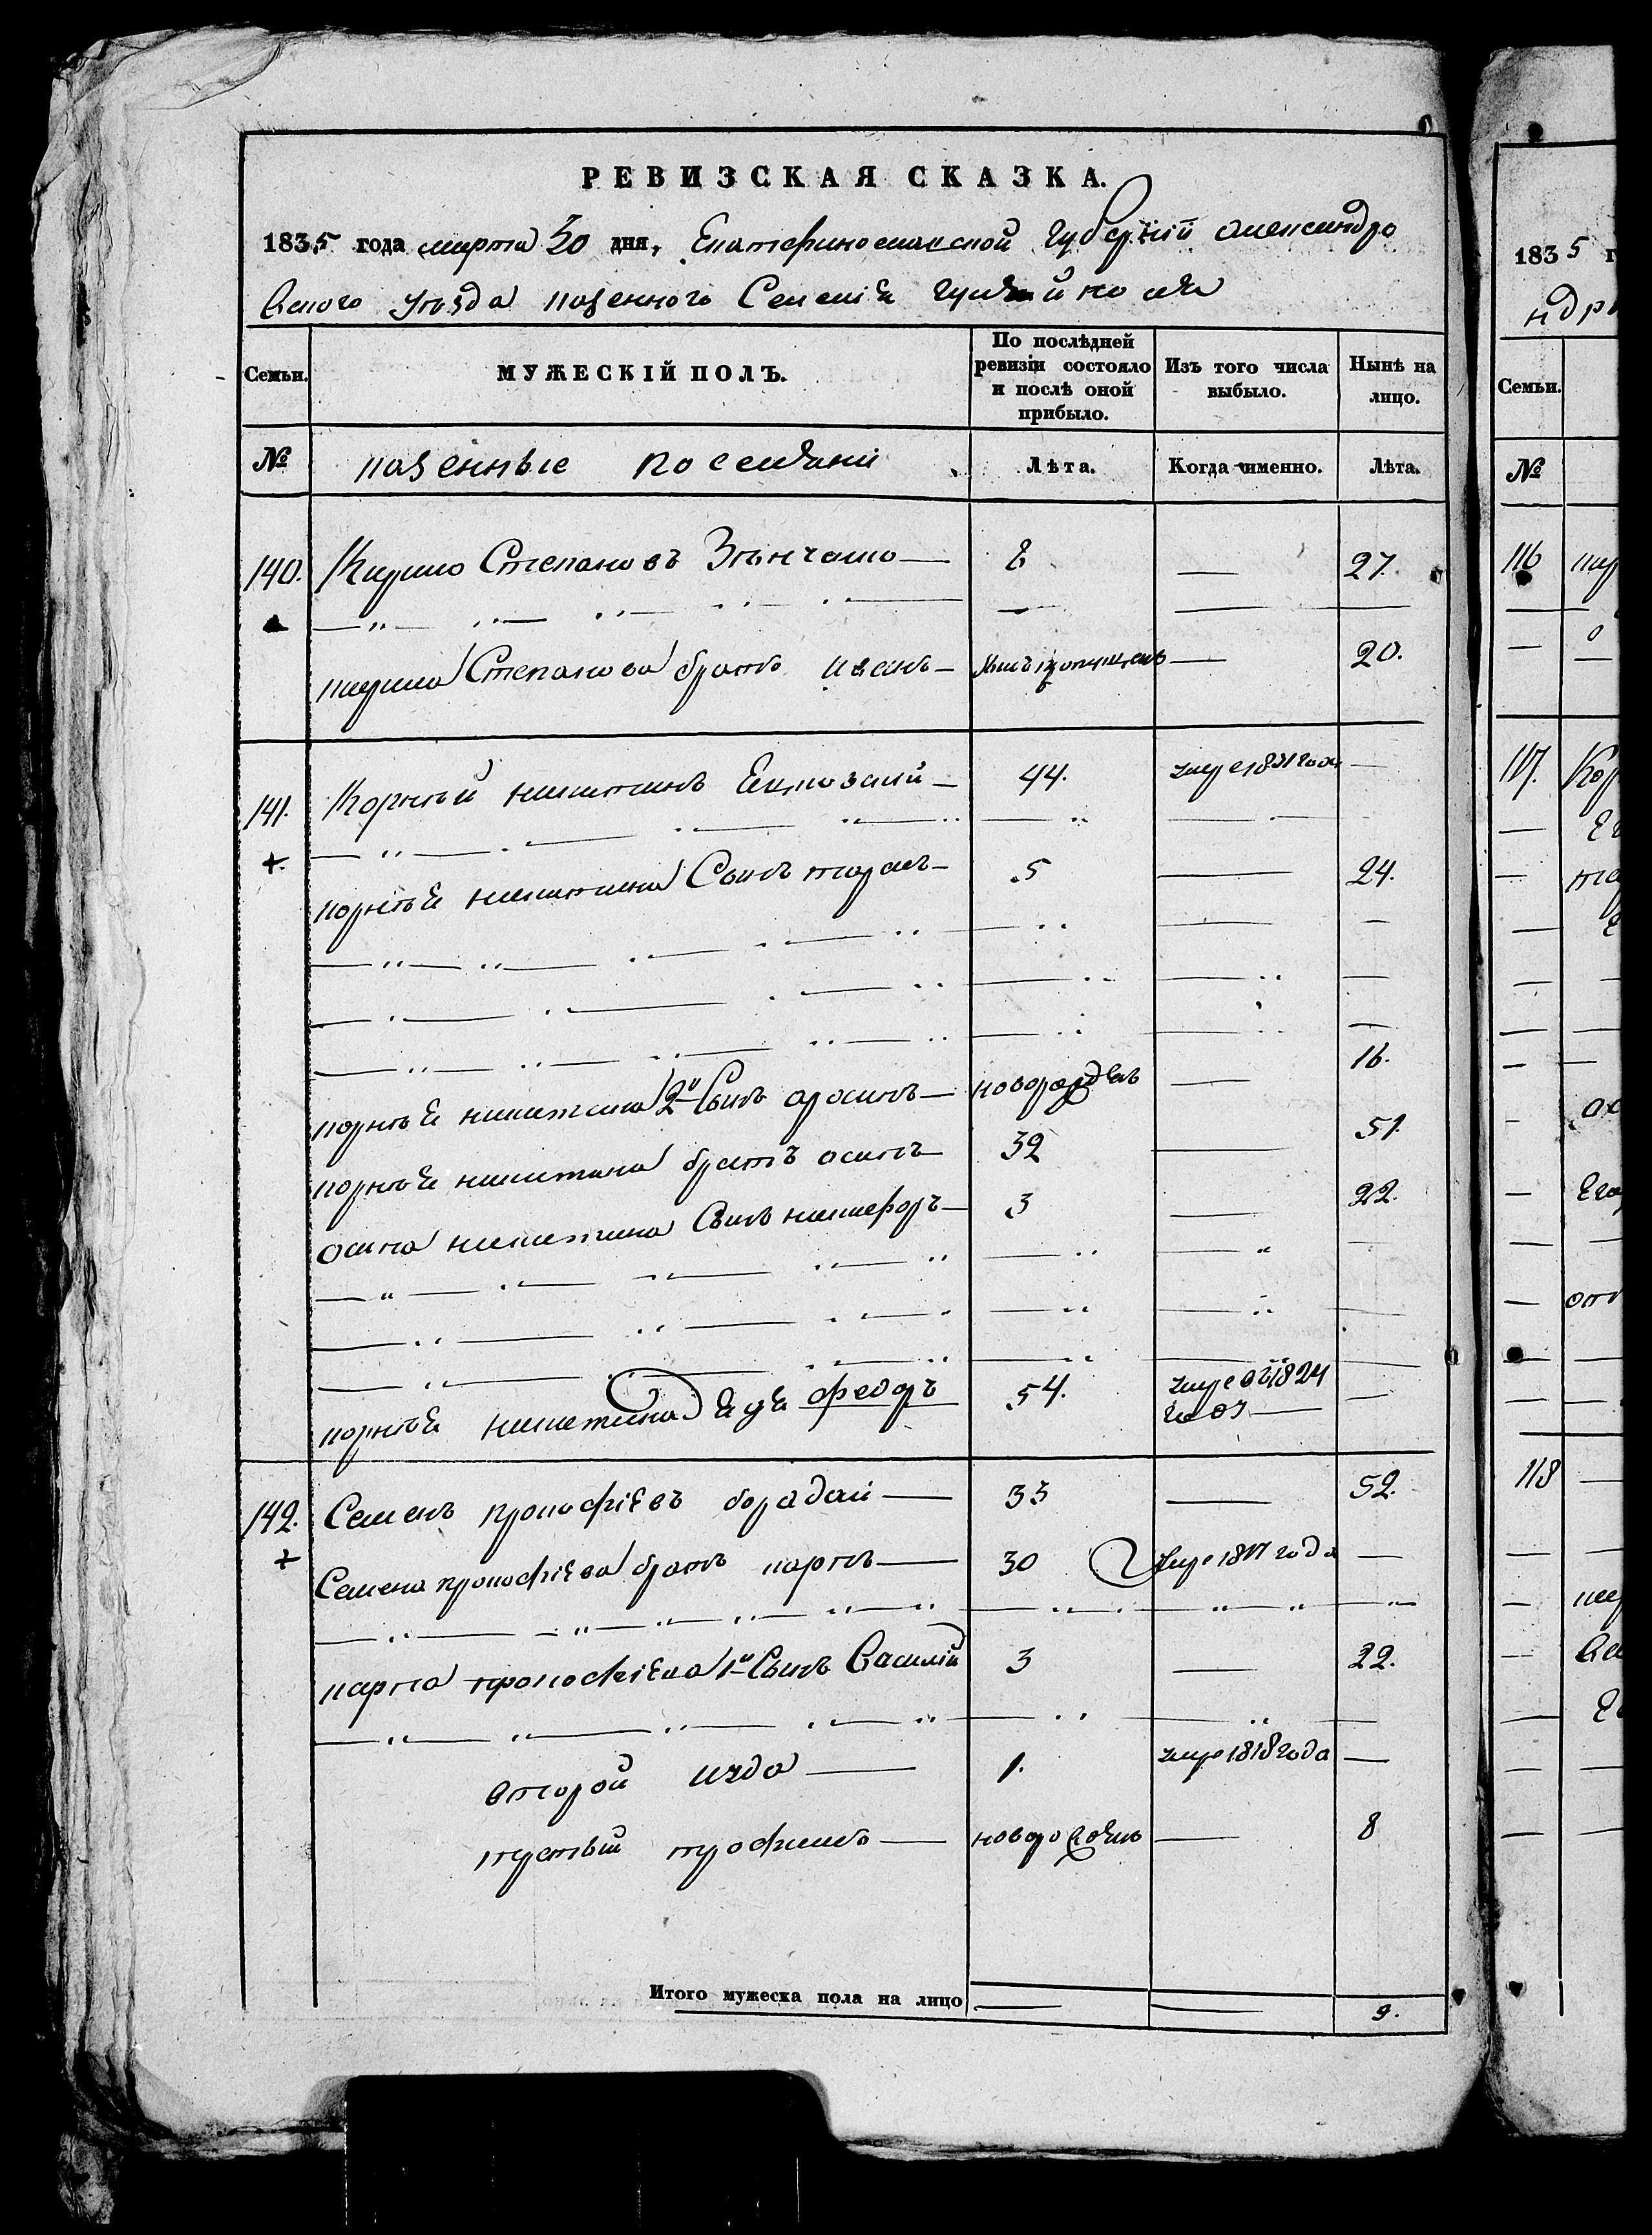 РЕВИЗСКАЯ СКАЗКА.
1835 года марта 30 дня, Екатеринославской Губерніи Александро
вского уѣзда казенного Селенія
Семьи. МУЖЕСКІЙ ПОЛЪ. По послѣдней ревизіи состояло и послѣ оной прибыло. Изъ того числа выбыло. Нынѣ на лицо.
№ казенные поселяни Лѣта. Когда именно. Лѣта.
140. Кирило Степановъ 8 — 27.
кирила Степанова братъ иванъ — — 20.
141. Корнѣй никитинъ — 44. умре 1831 года —
корнѣя никитина Сынъ тарасъ — 5 — 24.
корнѣя никитина 2й Сынъ — новорожденъ — 16.
корнѣя никитина братъ осипъ — 32 — 51.
осипа никитина Сынъ никифоръ — 3 — 22.
корнѣя никитина дядя федоръ 54. умре въ 1824 году —
142. Семенъ прокофіевъ — 33 — 52.
Семена прокофіева братъ карпъ — 30 умре 1817 года —
карпа прокофіева 1й Сынъ Василій 3 — 22.
второй — 1. умре 1818 года —
третьій трофимъ — новорожденъ — 8
Итого мужеска пола на лицо — — 9.
1835 г
ндро
Семьи.
№
116 кир
117. Кор
118